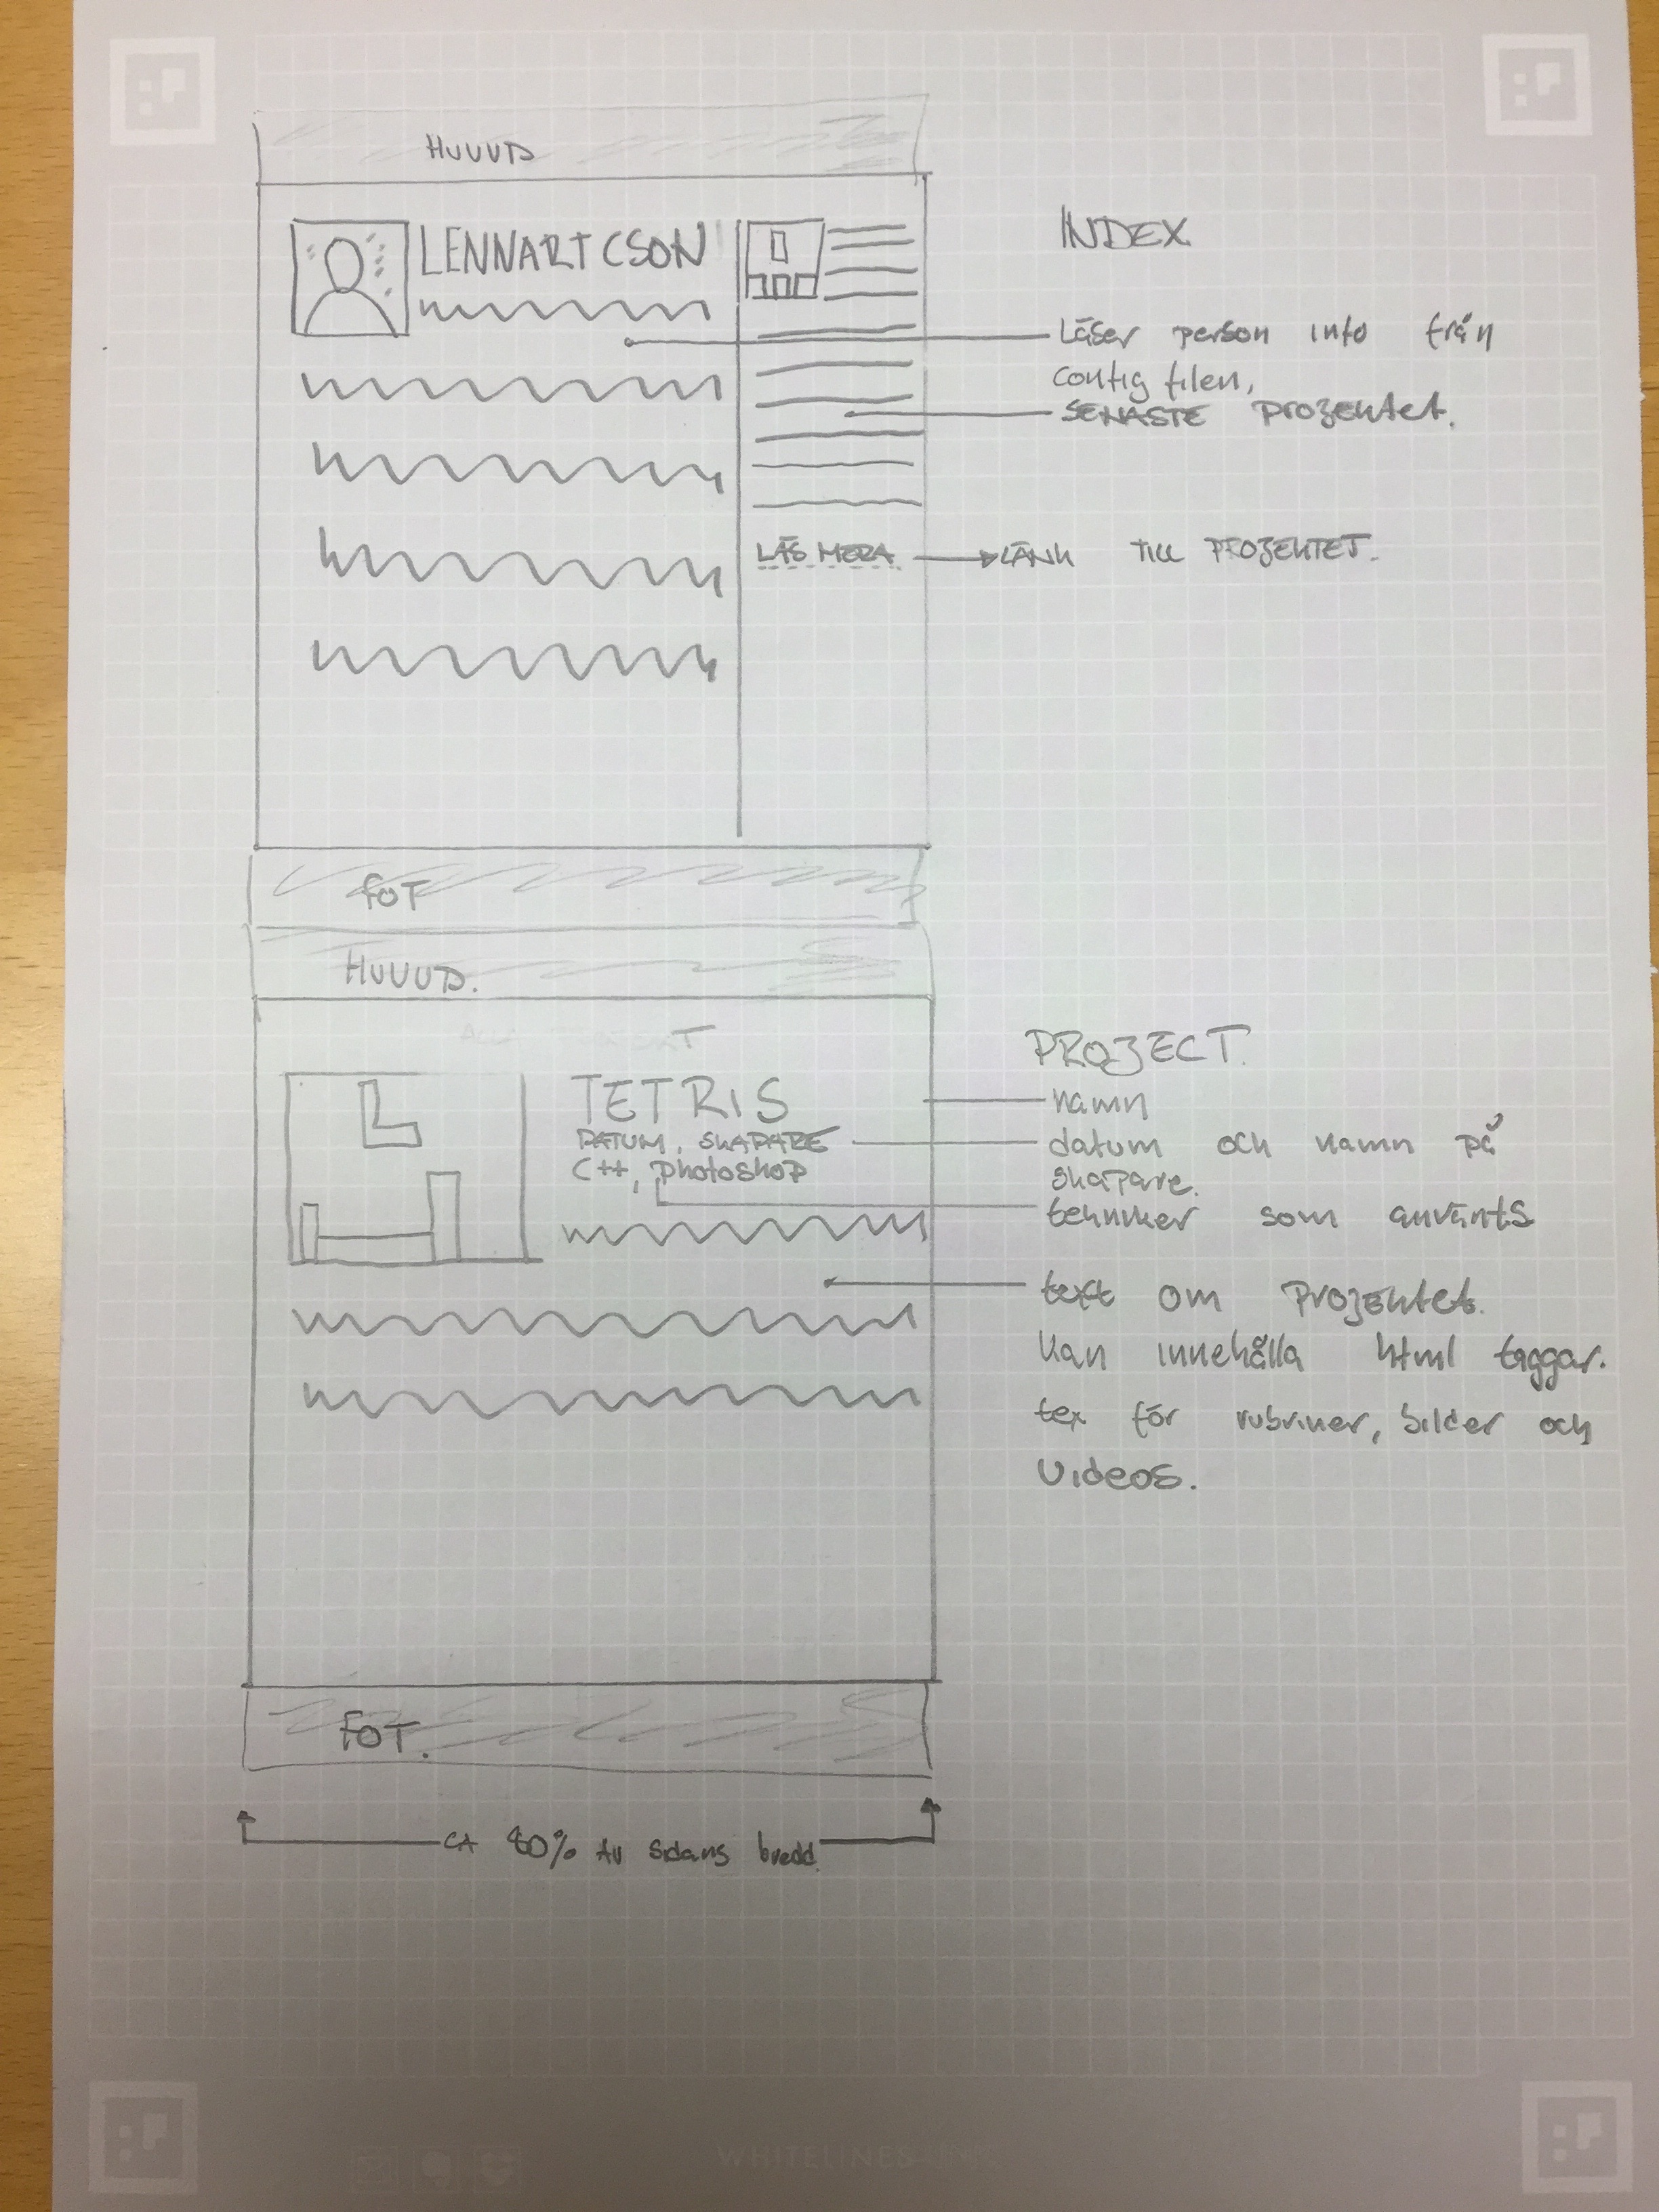 HUUUD
LENNART CSON
INDEX
Läser person info från
config filen,
SENASTE projektet.
LÄS MERA
LÄNK TILL PROJEKTET.
FOT
HUUUD.
PROJECT.
TETRIS
namn
DATUM, SKAPARE
datum och namn på
skapare.
C++, photoshop
tekniker som använts
text om projektet.
kan innehålla html taggar.
tex för rubriker, bilder och
videos.
FOT.
CA 80% AV sidans bredd.
WHITELINES